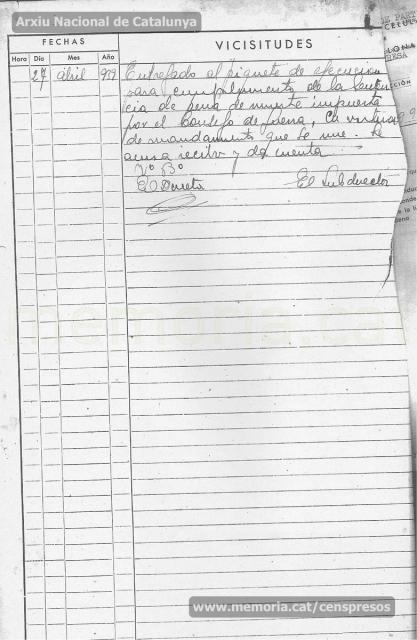 Arxiu Nacional de Catalunya
FECHAS
VICISITUDES
Hora Día Mes Año
27 abril 939 Entregado al piquete de ejecución
para cumplimiento de la senten
cia de pena de muerte impuesta
por el Consejo de guerra, En virtud
de mandamiento que se une. Se
acusa recibo y da cuenta
Vº Bº
El Director El Subdirector
www.memoria.cat/censpresos
memoria.cat